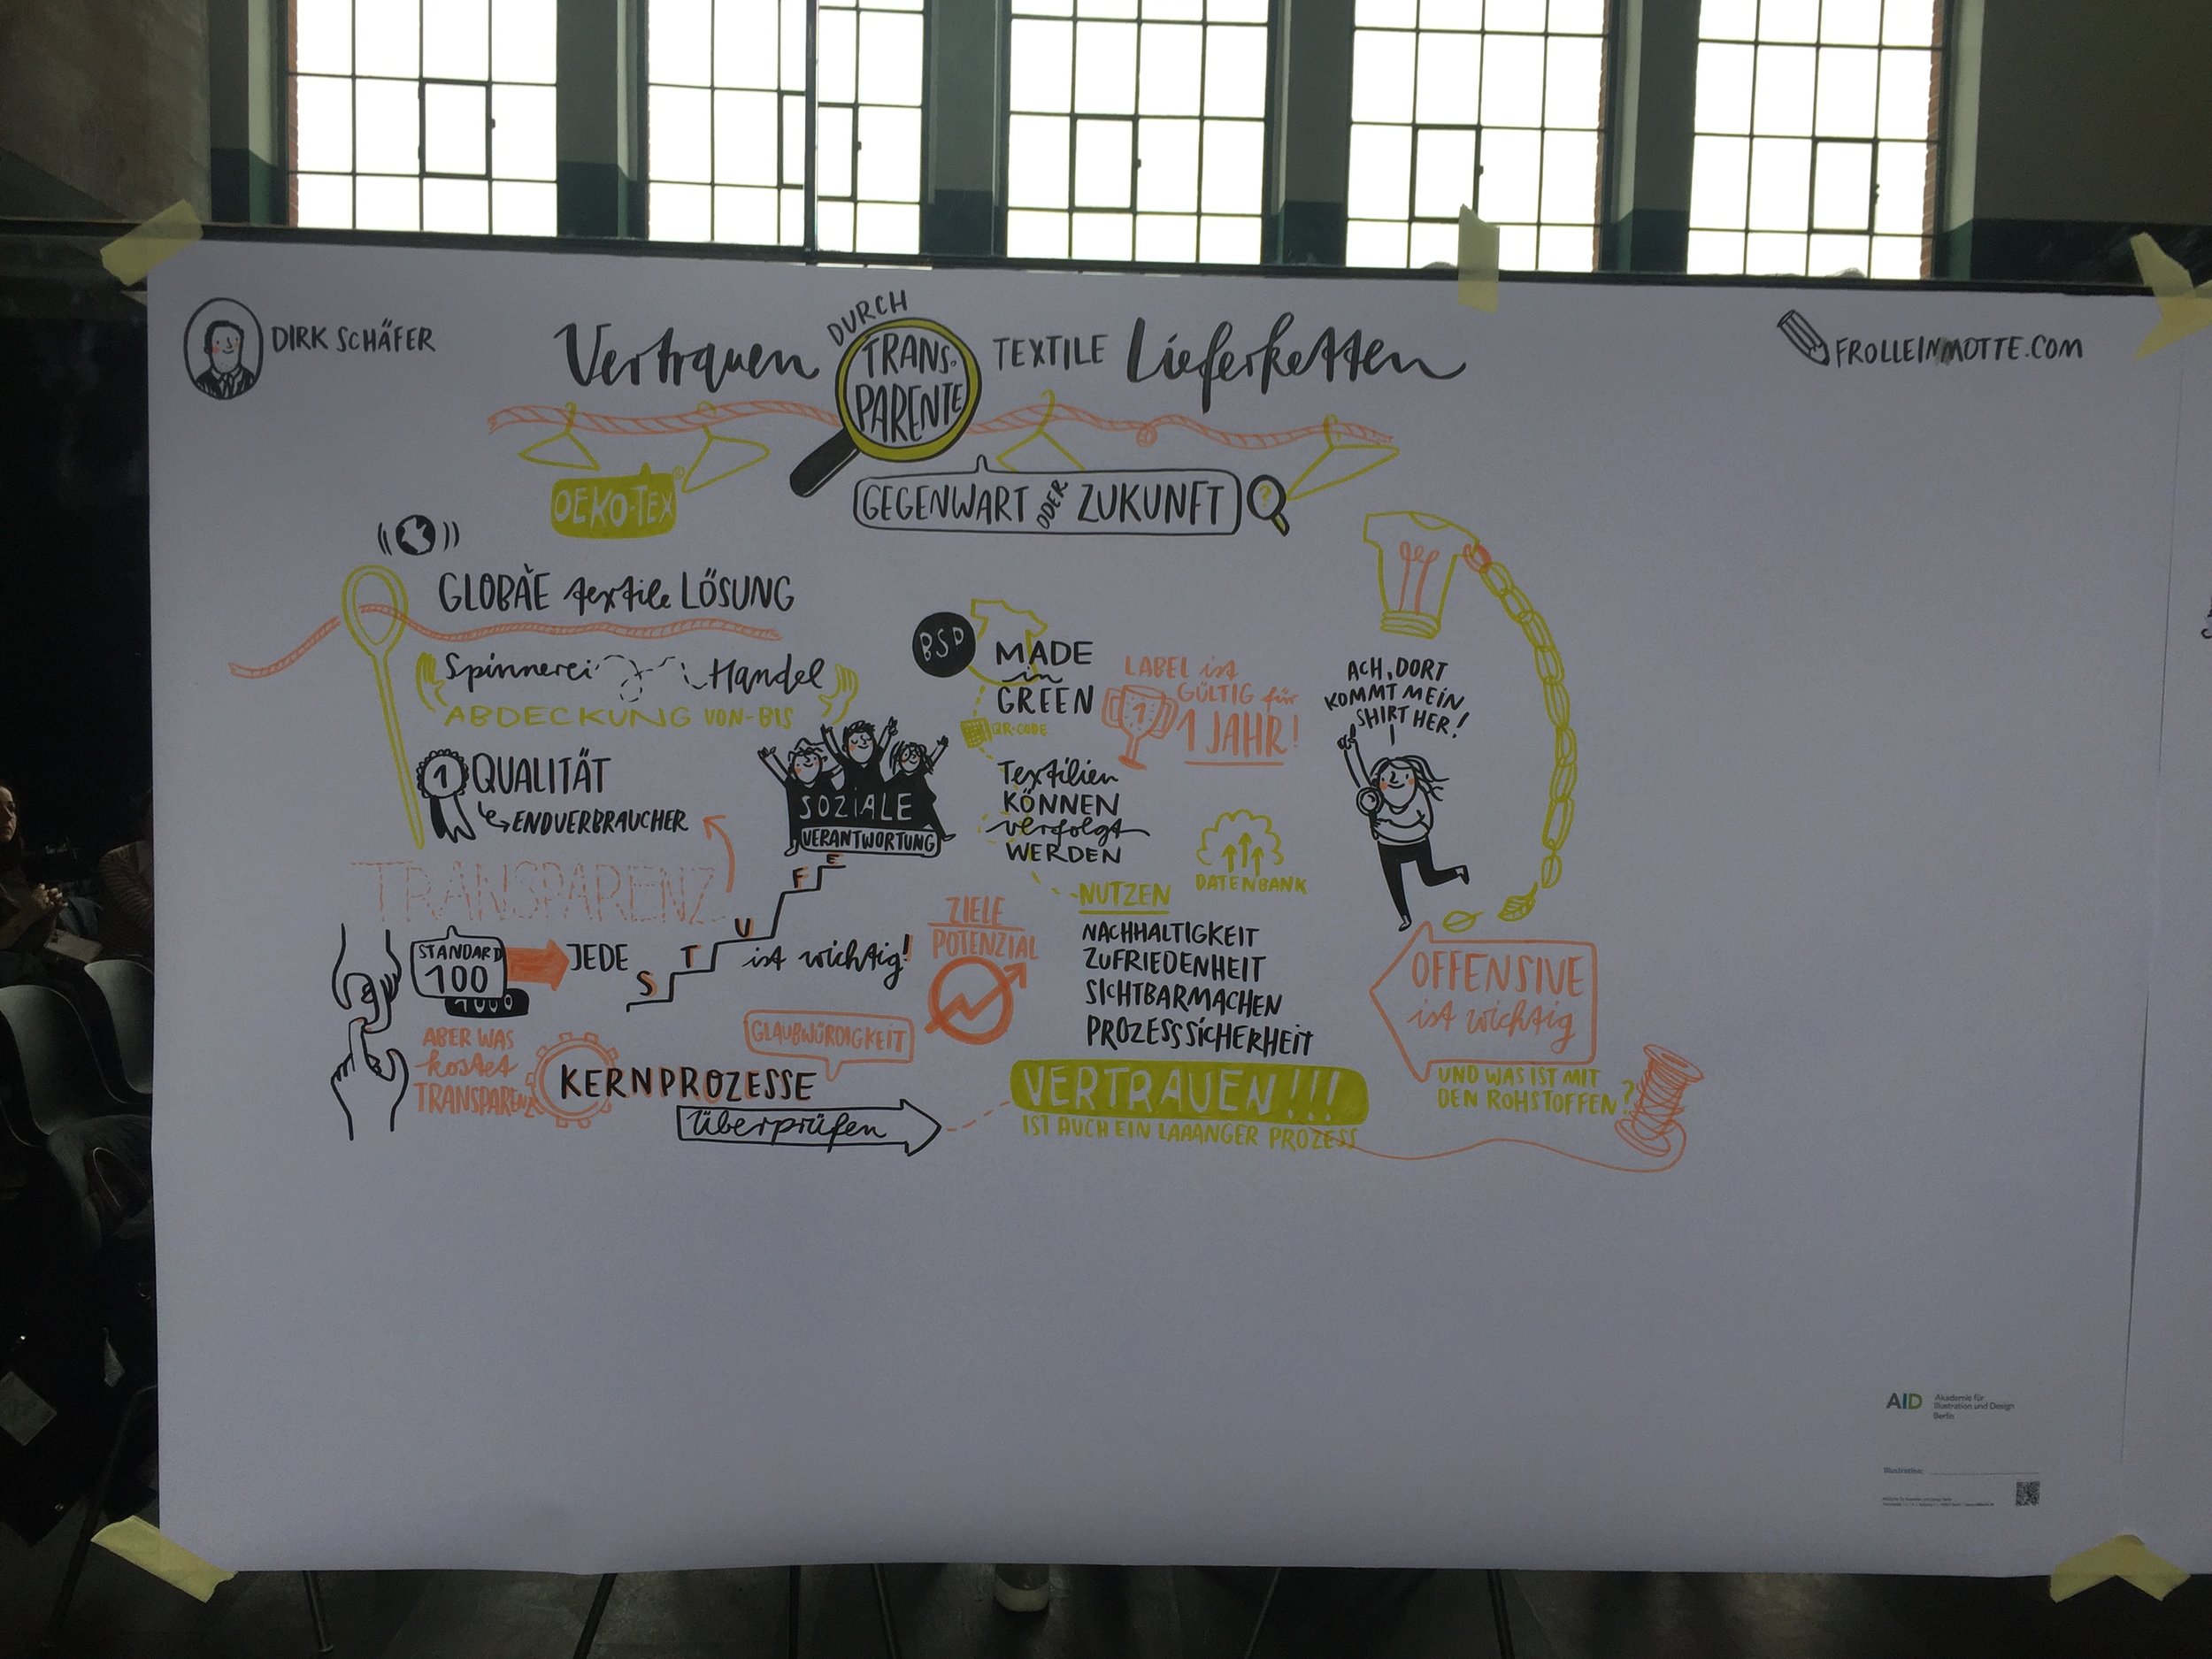 DIRK SCHÄFER
Vertrauen DURCH TRANS-
PARENTE TEXTILE Lieferketten
FROLLEINMOTTE.COM
OEKO-TEX®
GEGENWART ODER ZUKUNFT ?
GLOBALE textile LÖSUNG
Spinnerei Handel
ABDECKUNG VON-BIS
1 QUALITÄT
ENDVERBRAUCHER
SOZIALE
VERANTWORTUNG
TRANSPARENZ
STANDARD
100
1000
JEDE
STUFE
ist wichtig!
ABER WAS
kostet
TRANSPARENZ
KERNPROZESSE
überprüfen
GLAUBWÜRDIGKEIT
ZIELE
POTENZIAL
BSP
MADE
in
GREEN
QR-CODE
LABEL ist
GÜLTIG für
1 JAHR!
1
Textilien
KÖNNEN
verfolgt
WERDEN
DATENBANK
NUTZEN
NACHHALTIGKEIT
ZUFRIEDENHEIT
SICHTBARMACHEN
PROZESSSICHERHEIT
VERTRAUEN!!!
IST AUCH EIN LAAANGER PROZESS
ACH, DORT
KOMMT MEIN
SHIRT HER!
OFFENSIVE
ist wichtig
UND WAS IST MIT
DEN ROHSTOFFEN?
AID
Akademie für
Illustration und Design
Berlin
Illustration: